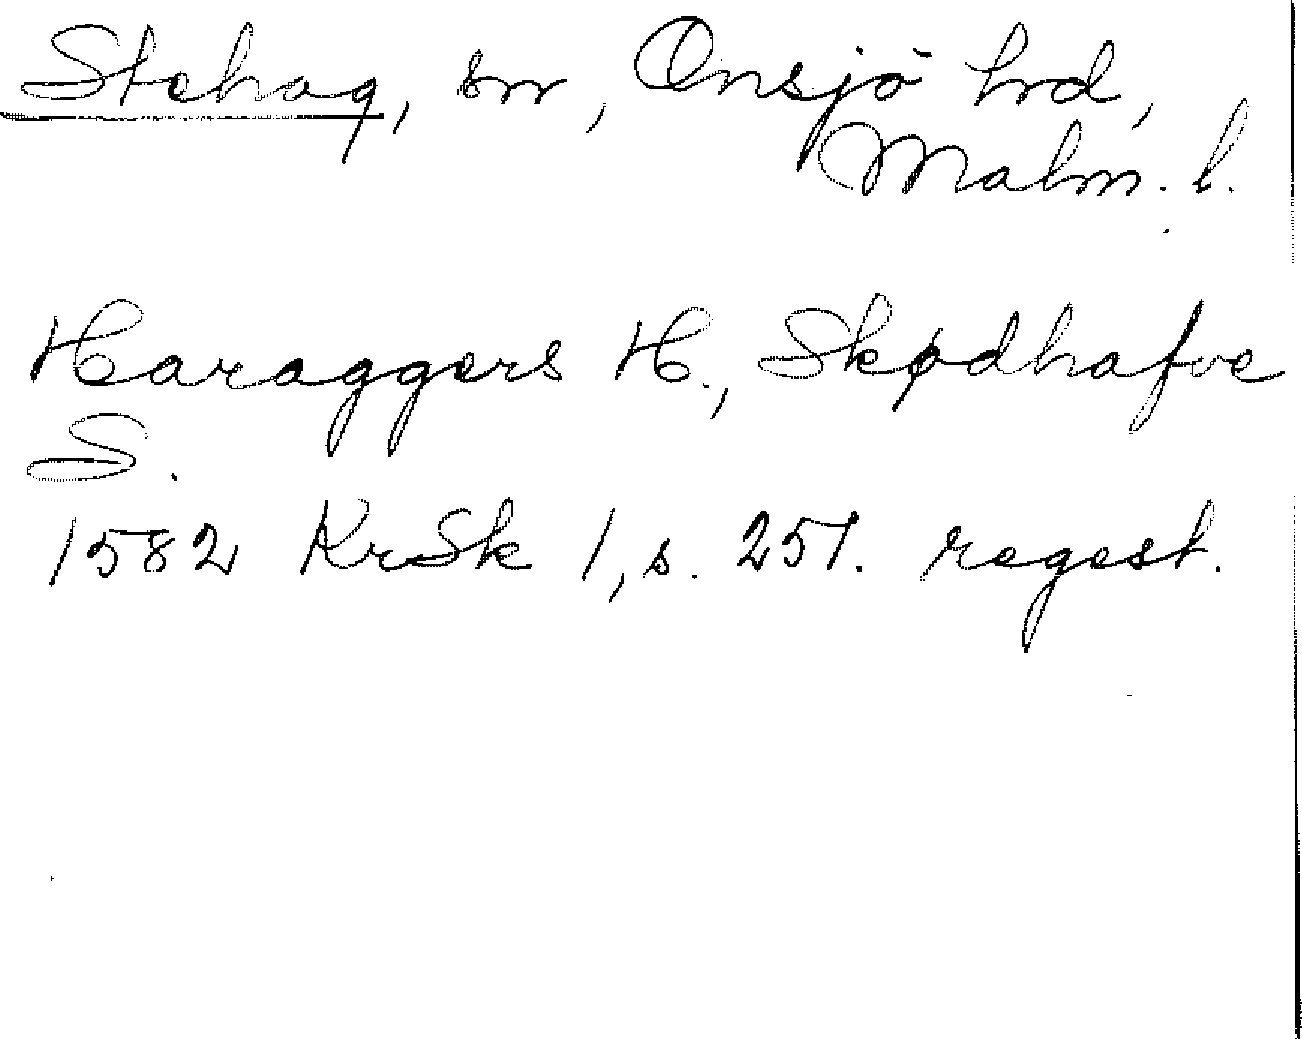 Stehag, sn, Onsjö hrd,
Malm. l.
Haraggers H., Skødhafve
S.
1582 KrSk 1, s. 251. regest.